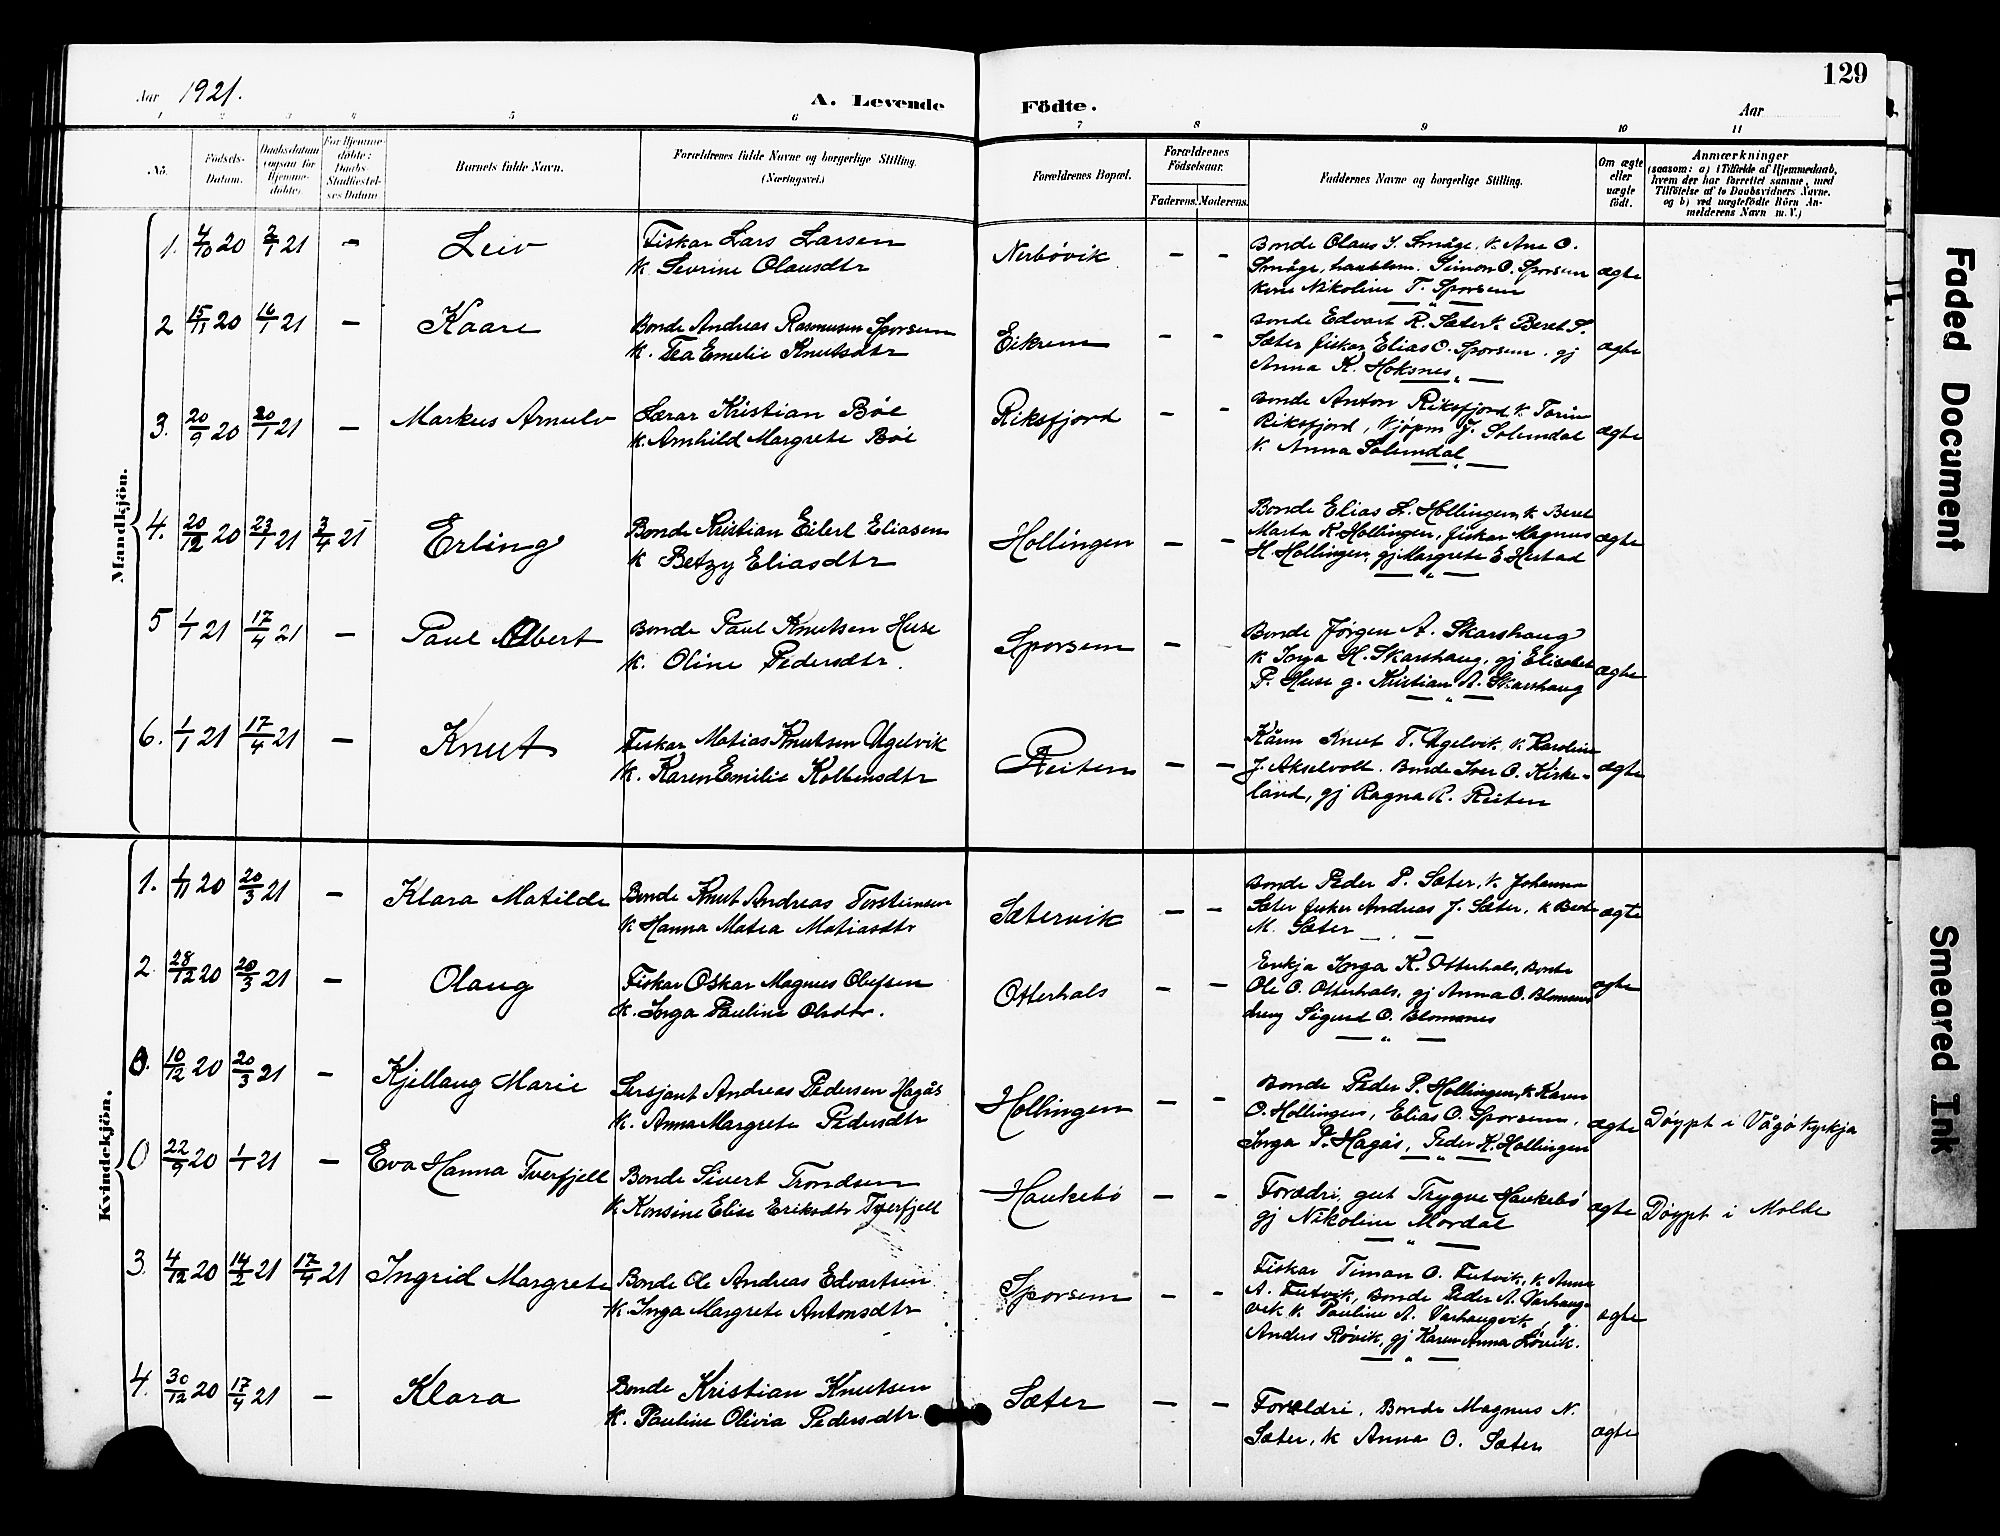 129
Aar 1921.
A. Levende Födte.
Aar
1 2 3 4 5 6 7 8 9 10 11
No.
Födsels-Datum.
Daabsdatum (ogsaa for Hjemme-döbte).
For Hjemme-döbte: Daabs-Stadfæstel-ses-Datum
Barnets fulde Navn.
Forældrenes fulde Navne og borgerlige Stilling. (Næringsvei.)
Forældrenes Bopæl.
Forældrenes Födselsaar.
Faderens. Moderens.
Faddernes Navne og borgerlige Stilling.
Om ægte eller uægte födt.
Anmærkninger
(saasom: a) i Tilfælde af Hjemmedaab,
hvem der har forrettet samme, med
Tilföielse af to Daabsvidners Navne.
og b) ved uægtefödte Börn An-
melderens Navn m. V.)
Mandkjön.
1. 4/10 20 2/1 21 - Leiv
Fiskar Lars Larsen
K. Sevrine Olausdtr
Nerbövik - -
Bonde Olaus S. Småge, K. Ane O.
Småge, Simon O. Sporsem
Nikoline T. Sporsem
ægte
2 15/11 20 16/1 21 - Kaare
Bonde Andreas Rasmusen Sporsem
K. Tea Emelie Knutsdtr
Eikrem - -
Bonde Edvart R. Sæter K. Beret S.
Sæter fiskar Elias O. Sporsem, gj
Anna K. Hoksnes
ægte
3. 20/9 20 20/1 21 - Markus Arnulv
Lærar Kristian Böe
K. Arnhild Margrete Böe
Riksfjord - -
Bonde Anton Riksfjord K. Torin
Riksfjord, Kjöpm J. Solemdal
K. Anna Solemdal
ægte
4. 20/12 20 23/1 21 3/4 21 Erling
Bonde Kristian Eilert Eliasen
K Betzy Eliasdtr
Hollingen - -
Bonde Elias H. Hollingen, K Beret
Marta K. Hollingen, fiskar Magnus
H. Hollingen, gj Margrete E Hustad
ægte
5 1/1 21 17/4 21 - Paul Albert
Bonde Paul Knutsen Huse
K. Oline Pedersdtr.
Sporsem -
Bonde Jörgen A. Skarshaug
K Inga H. Skarshaug, gj Elisabet
P. Huse g. Kristian A. Skarshaug
ægte
6. 1/1 21 17/4 21 - Knut
Fiskar Matias Knutsen Ugelvik
K. Karen Emilie Kolbensdtr
Reiten - -
Kårm Knut T. Ugelvik, K Karoline
J. Akselvoll. Bonde Iver O. Kirke-
land, gj Ragna R. Reiten
ægte
Kvindekjön.
1. 1/11 20 20/3 21 - Klara Matilde
Bonde Knut Andreas Torstensen
K Hanna Matea Matiasdtr
Sætervik - -
Bonde Peder P. Sæter, K. Johanna
Sæter fisker Andreas J. Sæter, K
M. Sæter
ægte
2. 28/12 20 20/3 21 - Olaug
Fiskar Oskar Magnus Olufsen
K. Inga Pauline Olsdtr.
Otterhals - -
Enkja Inga K. Otterhals, Bonde
Ole O. Otterhals, gj Anna O. Blomsnes
dreng Sigurd O. Blomsnes
ægte
0. 10/12 20 20/3 21 - Kjellaug Marie
Sersjant Andreas Pedersen Hagås
K. Anna Margrete Pedersdtr
Hollingen - -
Bonde Peder P. Hollingen, K Karen
O. Hollingen, Elias O. Sporsem,
Inga P. Hagås, Peder K. Hollingen
ægte
Döypt i Vågö kyrkja
0 22/9 20 1/1 21 - Eva Hanna Tverfjell
Bonde Sivert Trondsen
K Konsine Elise Eriksdtr Tverfjell
Haukebö - -
Forældri, gut Trygve Haukebö
gj Nikoline Mordal
ægte
Döypt i Molde
3. 4/12 20 14/2 21 17/4 21 Ingrid Margrete
Bonde Ole Andreas Edvartsen
K. Inga Margrete Antonsdtr
Sporsem - -
Fiskar Timan O. Futvik, K Anne
A. Futvik, Bonde Peder A. Varhaug-
vik K. Pauline A. Varhaugvik, g.
Anders Rövik, gj Karen Anna Lövik.
ægte
4. 30/12 20 17/4 21 - Klara
Bonde Kristian Knutsen
K. Pauline Olivia Pedersdtr
Sæter - -
Forældri, Bonde Magnus N.
Sæter, K Anna O. Sæter
ægte
Faded Document
Smeared Ink